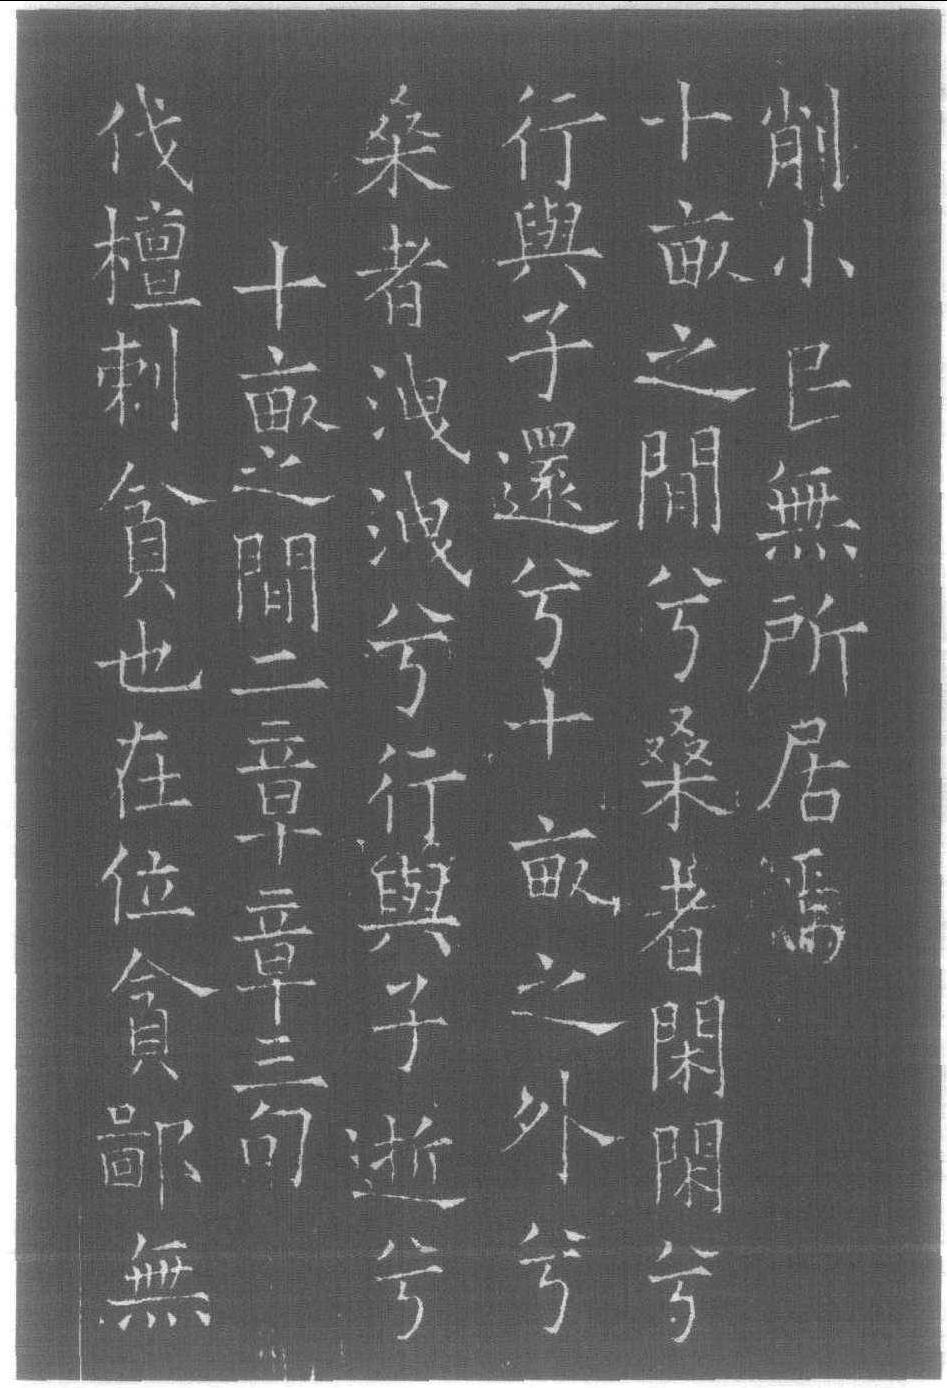 削小民無所居焉
十畝之間兮桑者閑閑兮
行與子還兮十畝之外兮
桑者洩洩兮行與子逝兮
十畝之間二章章三句
伐檀刺貪也在位貪鄙無